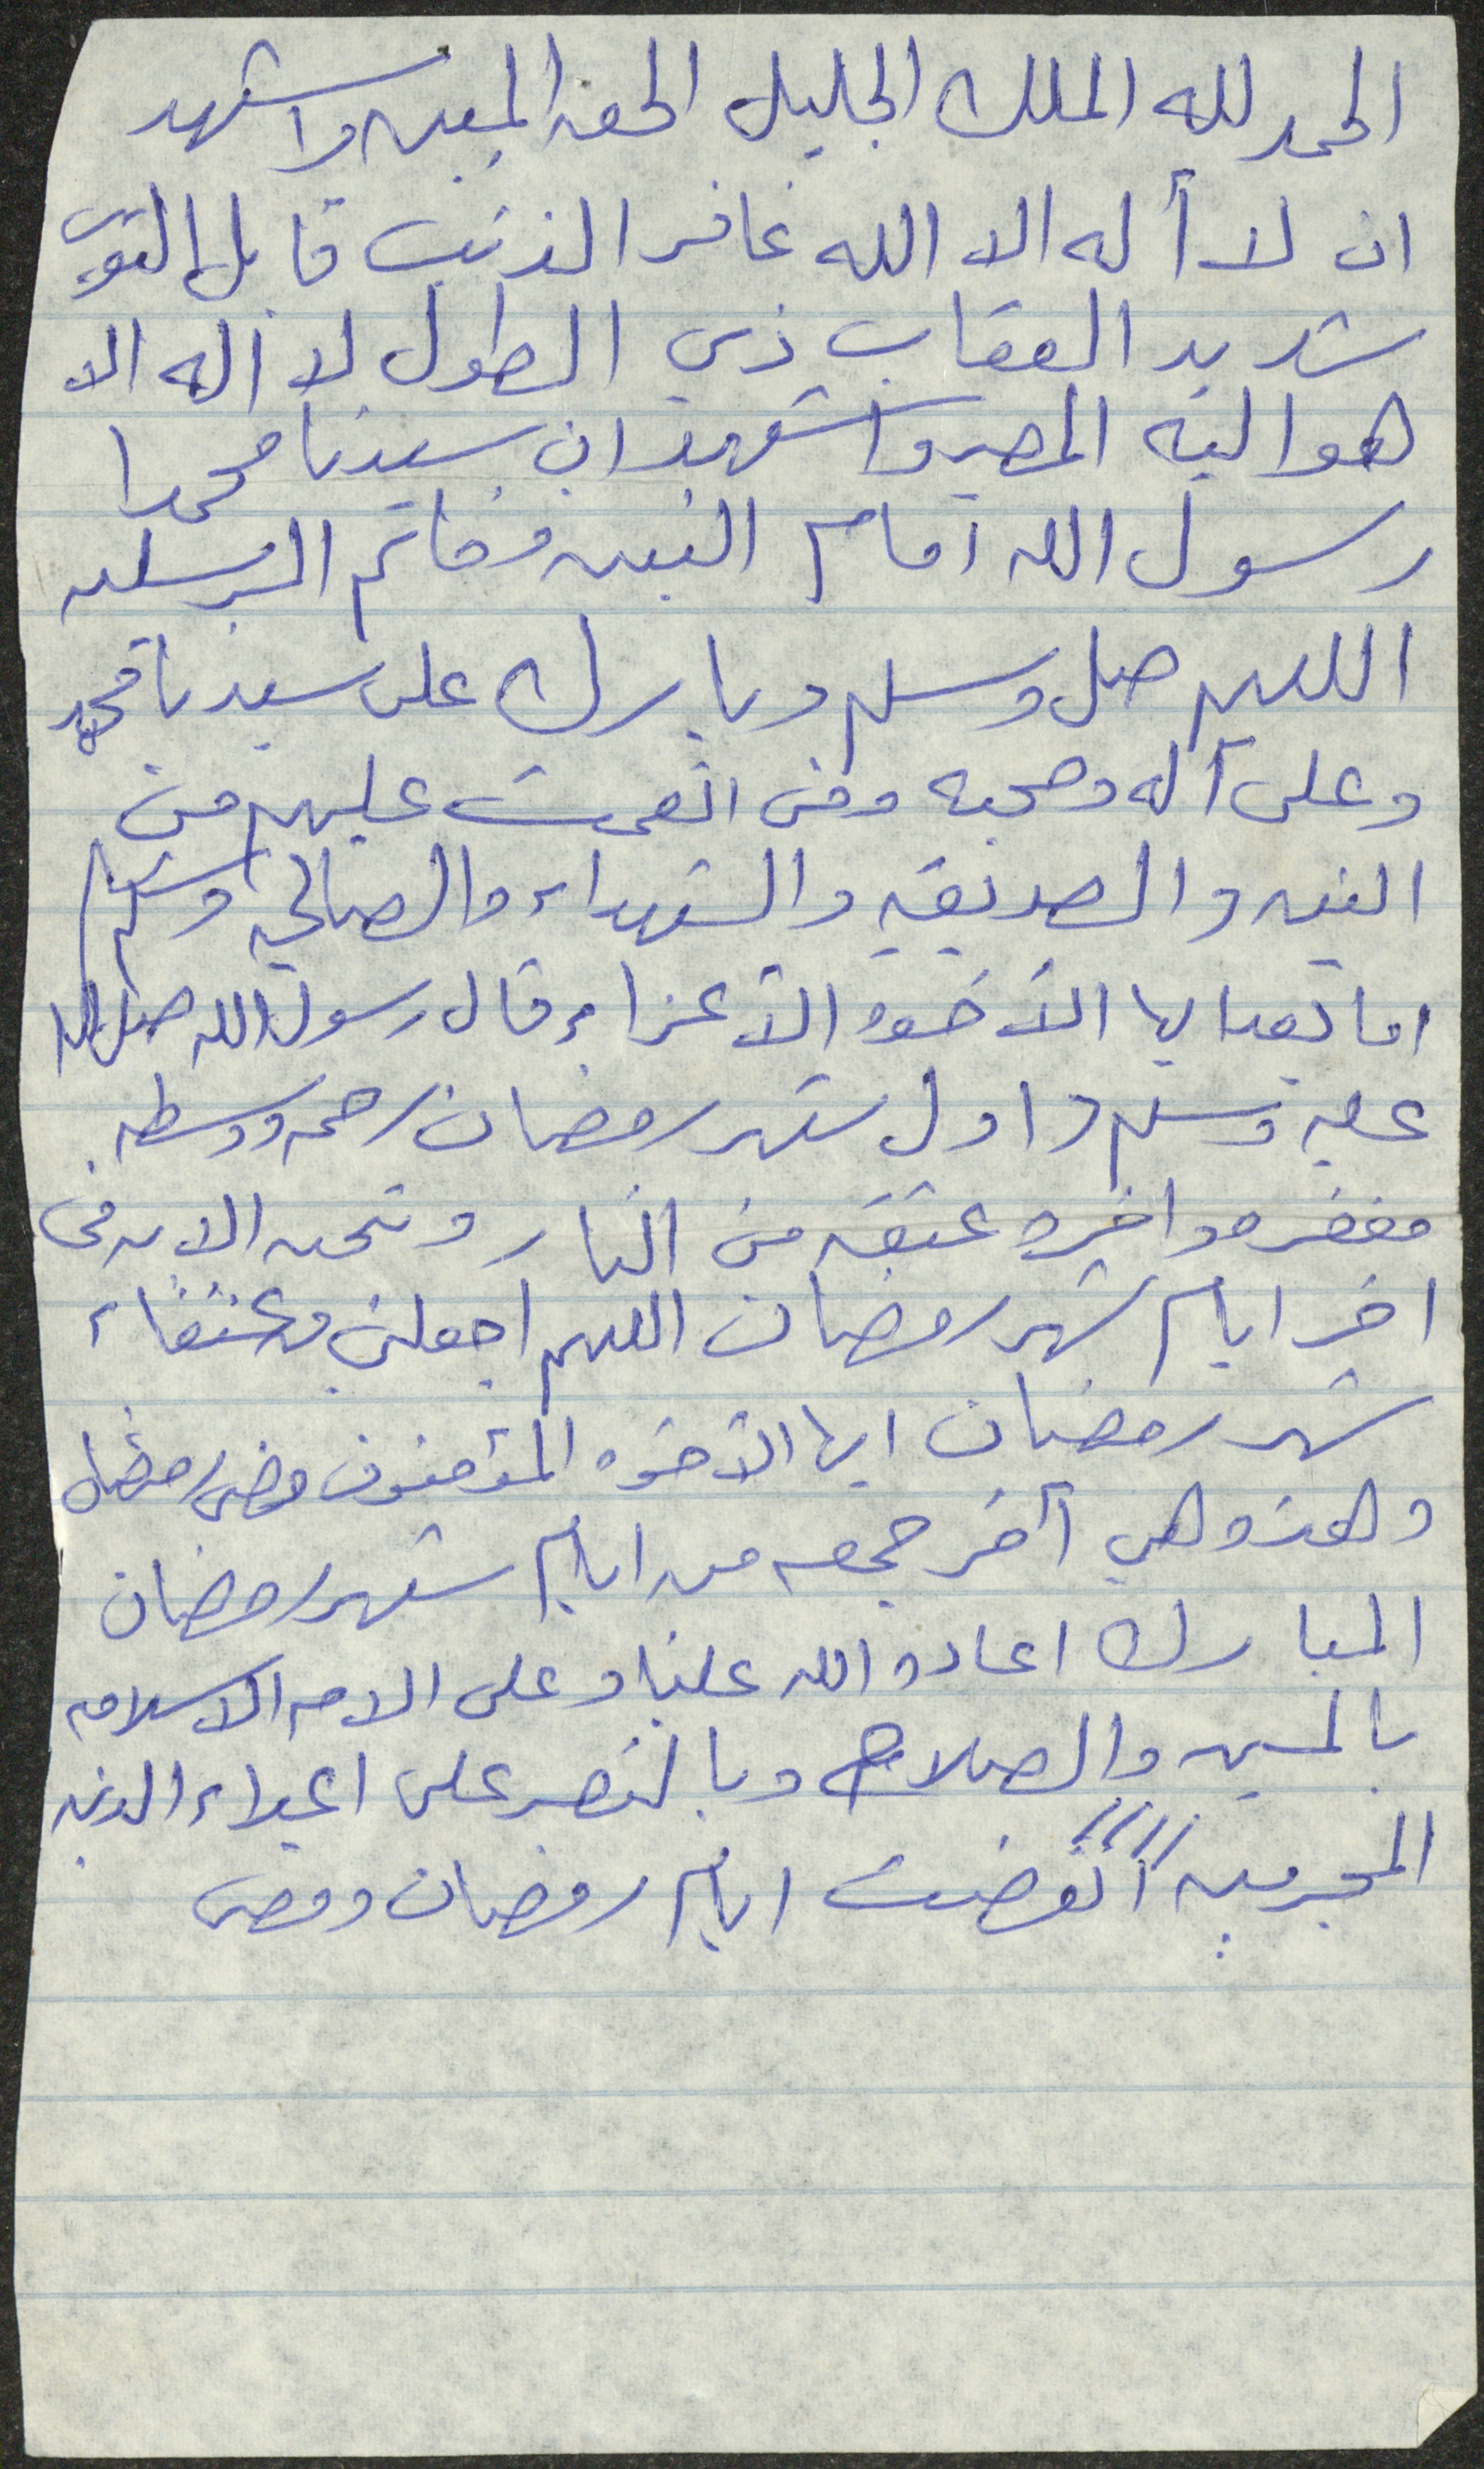 الحمد لله الملك الجليل الحق المبين واشهد
ان لا أله الا الله غافر الذنب قابل التوب
شديد العقاب ذي الطول لا اله الا
هو اليه المصير واشهد ان سيدنا محمدا
رسول الله امام النبين وخاتم المرسلين
اللهم صل وسلم وبارك على سيدنا محمد
وعلى آله وصحبه ومن انعمت عليهم من
النبين والصديقين والشهداء والصالحين وسلم
اما بعد ايها الأخوه الأعزاء قال رسول الله صلى الله
عليه وسلم اول شهر رمضان رحمه ووسطه
مغفره واخره عتقه من النار ونحن الان في
اخر ايام شهر رمضان اللهم اجعلني من عتقاء
شهر رمضان ايها الأخوه المؤمنون مضى رمضان
وهذه هي آخر جمعه من ايام شهر رمضان
المبارك اعاده الله علينا وعلى الامه الاسلاميه
باليمن والصلاح وبالنصر على اعداء الدين
المجرمين انقضت ايام رمضان ومضى